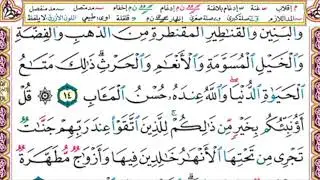 وَٱلْبَنِينَ وَٱلْقَنَٰطِيرِ ٱلْمُقَنطَرَةِ مِنَ ٱلذَّهَبِ وَٱلْفِضَّةِ
وَٱلْخَيْلِ ٱلْمُسَوَّمَةِ وَٱلْأَنْعَٰمِ وَٱلْحَرْثِ ذَٰلِكَ مَتَٰعُ
ٱلْحَيَوٰةِ ٱلدُّنْيَا وَٱللَّهُ عِندَهُۥ حُسْنُ ٱلْمَـَٔابِ ١٤ قُلْ
أَؤُنَبِّئُكُم بِخَيْرٍ مِّن ذَٰلِكُمْ لِلَّذِينَ ٱتَّقَوْا۟ عِندَ رَبِّهِمْ جَنَّٰتٌ
تَجْرِى مِن تَحْتِهَا ٱلْأَنْهَٰرُ خَٰلِدِينَ فِيهَا وَأَزْوَٰجٌ مُّطَهَّرَةٌ